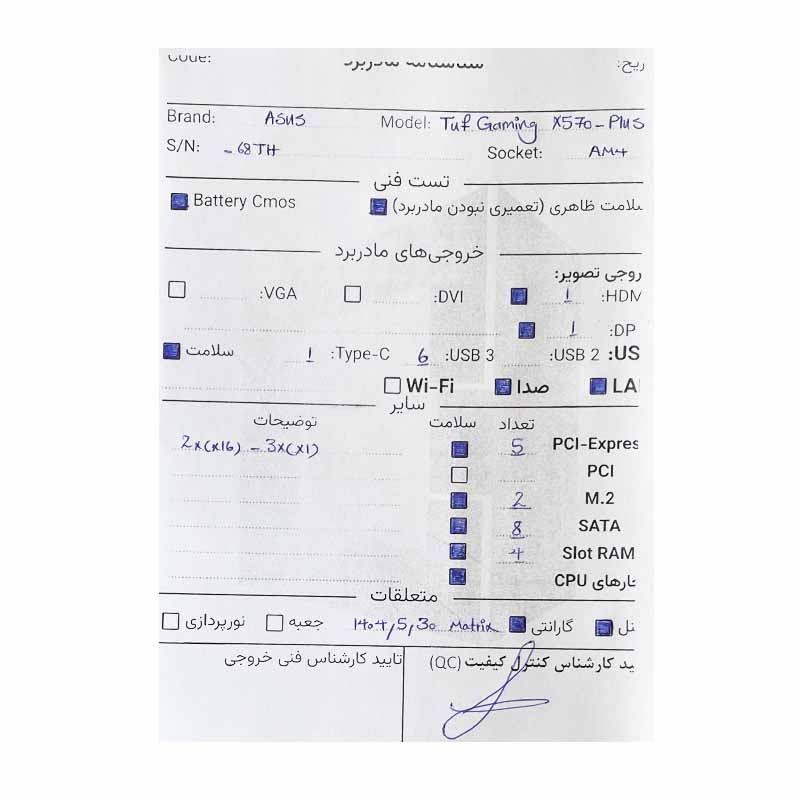 Code: شناسنامه مادربرد ریخ:
Brand: ASUS Model: Tuf Gaming X570-Plus
S/N: - 68TH Socket: AM4
تست فنی
سلامت ظاهری (تعمیری نبودن مادربرد) Battery Cmos
خروجی‌های مادربرد
روجی تصویر:
HDM: 1 DVI: VGA:
DP: 1
US: USB 2: USB 3: 6 Type-C: 1 سلامت
LA صدا Wi-Fi
سایر
تعداد سلامت توضیحات
PCI-Expres 5 2x(x16) - 3x(x1)
PCI
M.2 2
SATA 8
Slot RAM 4
خارهای CPU
متعلقات
نل گارانتی 1404,5,30 Matrix جعبه نورپردازی
ید کارشناس کنترل کیفیت (QC) تایید کارشناس فنی خروجی